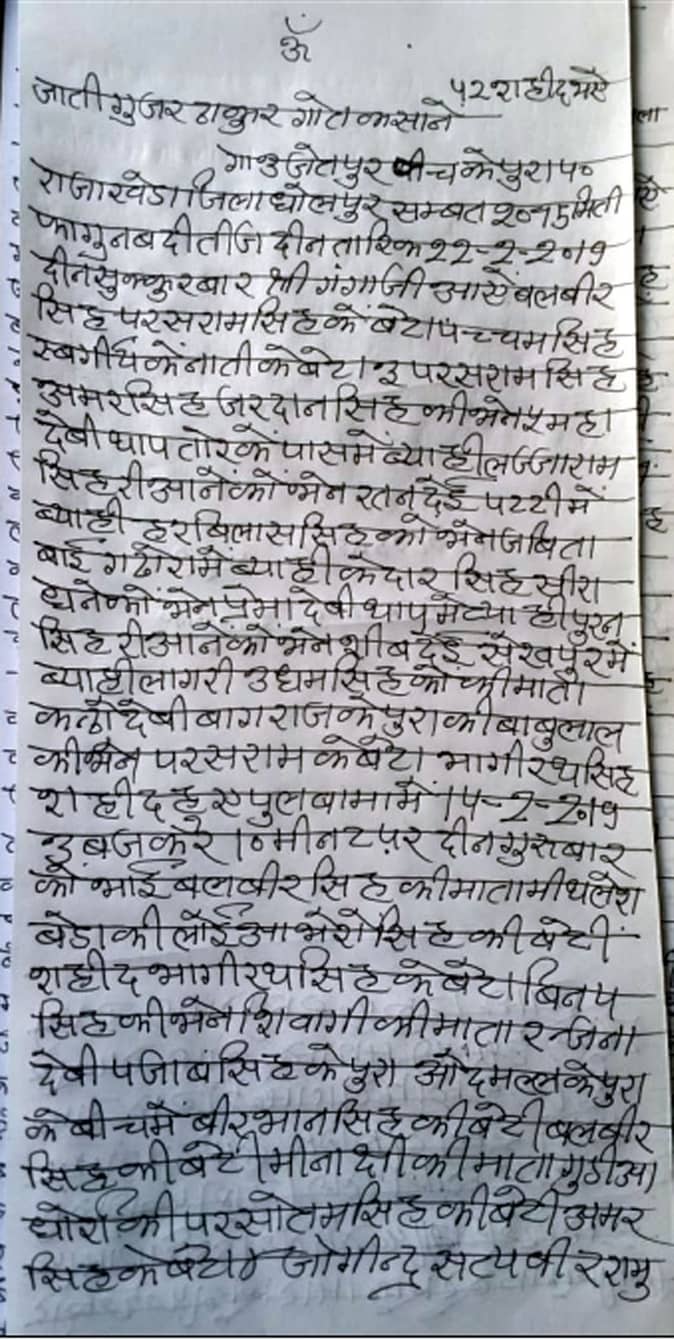 ॐ
५२ शहीद भऐ
जाती गुजर ठाकुर गोट कसाने
गाउ जेतपुर बीच के पुरा प०
राजाखेडा जिला धोलपुर सम्बत २०१५ मिती
फागुन बदी तीज दीन तारिक २२-२-२०१९
दीन सुक्कुरबार श्री गंगाजी आऐ बलबीर
सिह परसराम सिह कें बेटा पच्चम सिह
स्बर्गीय कें नाती के बेटा ३ परसराम सिह
अमर सिह जरदान सिह की भेन ५ महा
देबी थाप तोर कें पास में ब्याही लज्जाराम
सिह रीआने कों भेन रतन देई पटटी में
ब्याही हरबिलास सिह को भेन जबिता
बाई गढोरा में ब्याही केदार सिह खीरा
धने कों भेन प्रेमा देबी थापु में ब्याही पुरन
सिह रीआने कों भेन शीब देई सेखपुर में
ब्याही लागरी उधम सिह को की माता
कलौ देबी बागराज के पुरा की बाबुलाल
की भेन परसराम के बेटा भागीरथ सिह
शहीद हुऐ पुलबामा में 14-2-2019
३ बजकर 10 मीनट पर दीन गुरुबार
को भाई बलबीर सिह की माता मीथलेश
बेडा की लोई आ भेरो सिह की बेटी
शहीद भागीरथ सिह के बेटा बिनय
सिह की भेन शिवागी की माता रन्जना
देबी पजाब सिह के पुरा ओदमल्ल के पुरा
के बीच में बीरभान सिह की बेटी बलबीर
सिह की बेटी मीनाक्षी की माता गुडीआ
धोर्रा की परसोतम सिह की बेटी अमर
सिह के बेटा ४ जोगीन्द्र सत्यबीर रामु